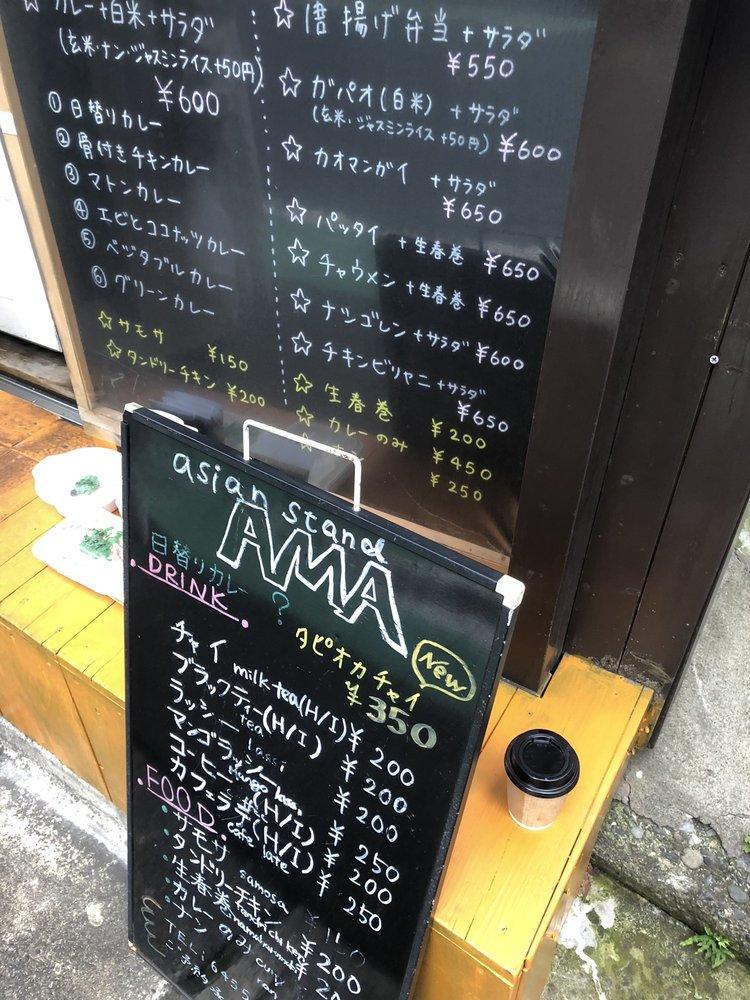 カレー+白米+サラダ
(玄米・ナン・ジャスミンライス+50円)
¥600
① 日替りカレー
② 骨付きチキンカレー
③ マトンカレー
④ エビとココナッツカレー
⑤ ベジタブルカレー
⑥ グリーンカレー
☆ サモサ ¥150
☆ タンドリーチキン ¥200
☆ 唐揚げ弁当+サラダ
¥550
☆ ガパオ(白米)+サラダ
(玄米・ジャスミンライス+50円) ¥600
☆ カオマンガイ +サラダ
¥650
☆ パッタイ +生春巻 ¥650
☆ チャウメン+生春巻 ¥650
☆ ナシゴレン+サラダ ¥600
☆ チキンビリヤニ+サラダ
¥650
☆ 生春巻 ¥200
☆ カレーのみ ¥450
¥250
asian stand
AMA
日替りカレー ?
DRINK
タピオカチャイ New
¥350
チャイ milk-tea(H/I) ¥200
ブラックティー(H/I) ¥200
tea
ラッシー lassi ¥200
マンゴラッシー ¥250
コーヒー(H/I) ¥200
カフェラテ(H/I) ¥250
FOOD
サモサ samosa
タンドリーチキン ¥200
生春巻
カレーのみ
ナン
TEL: 6455